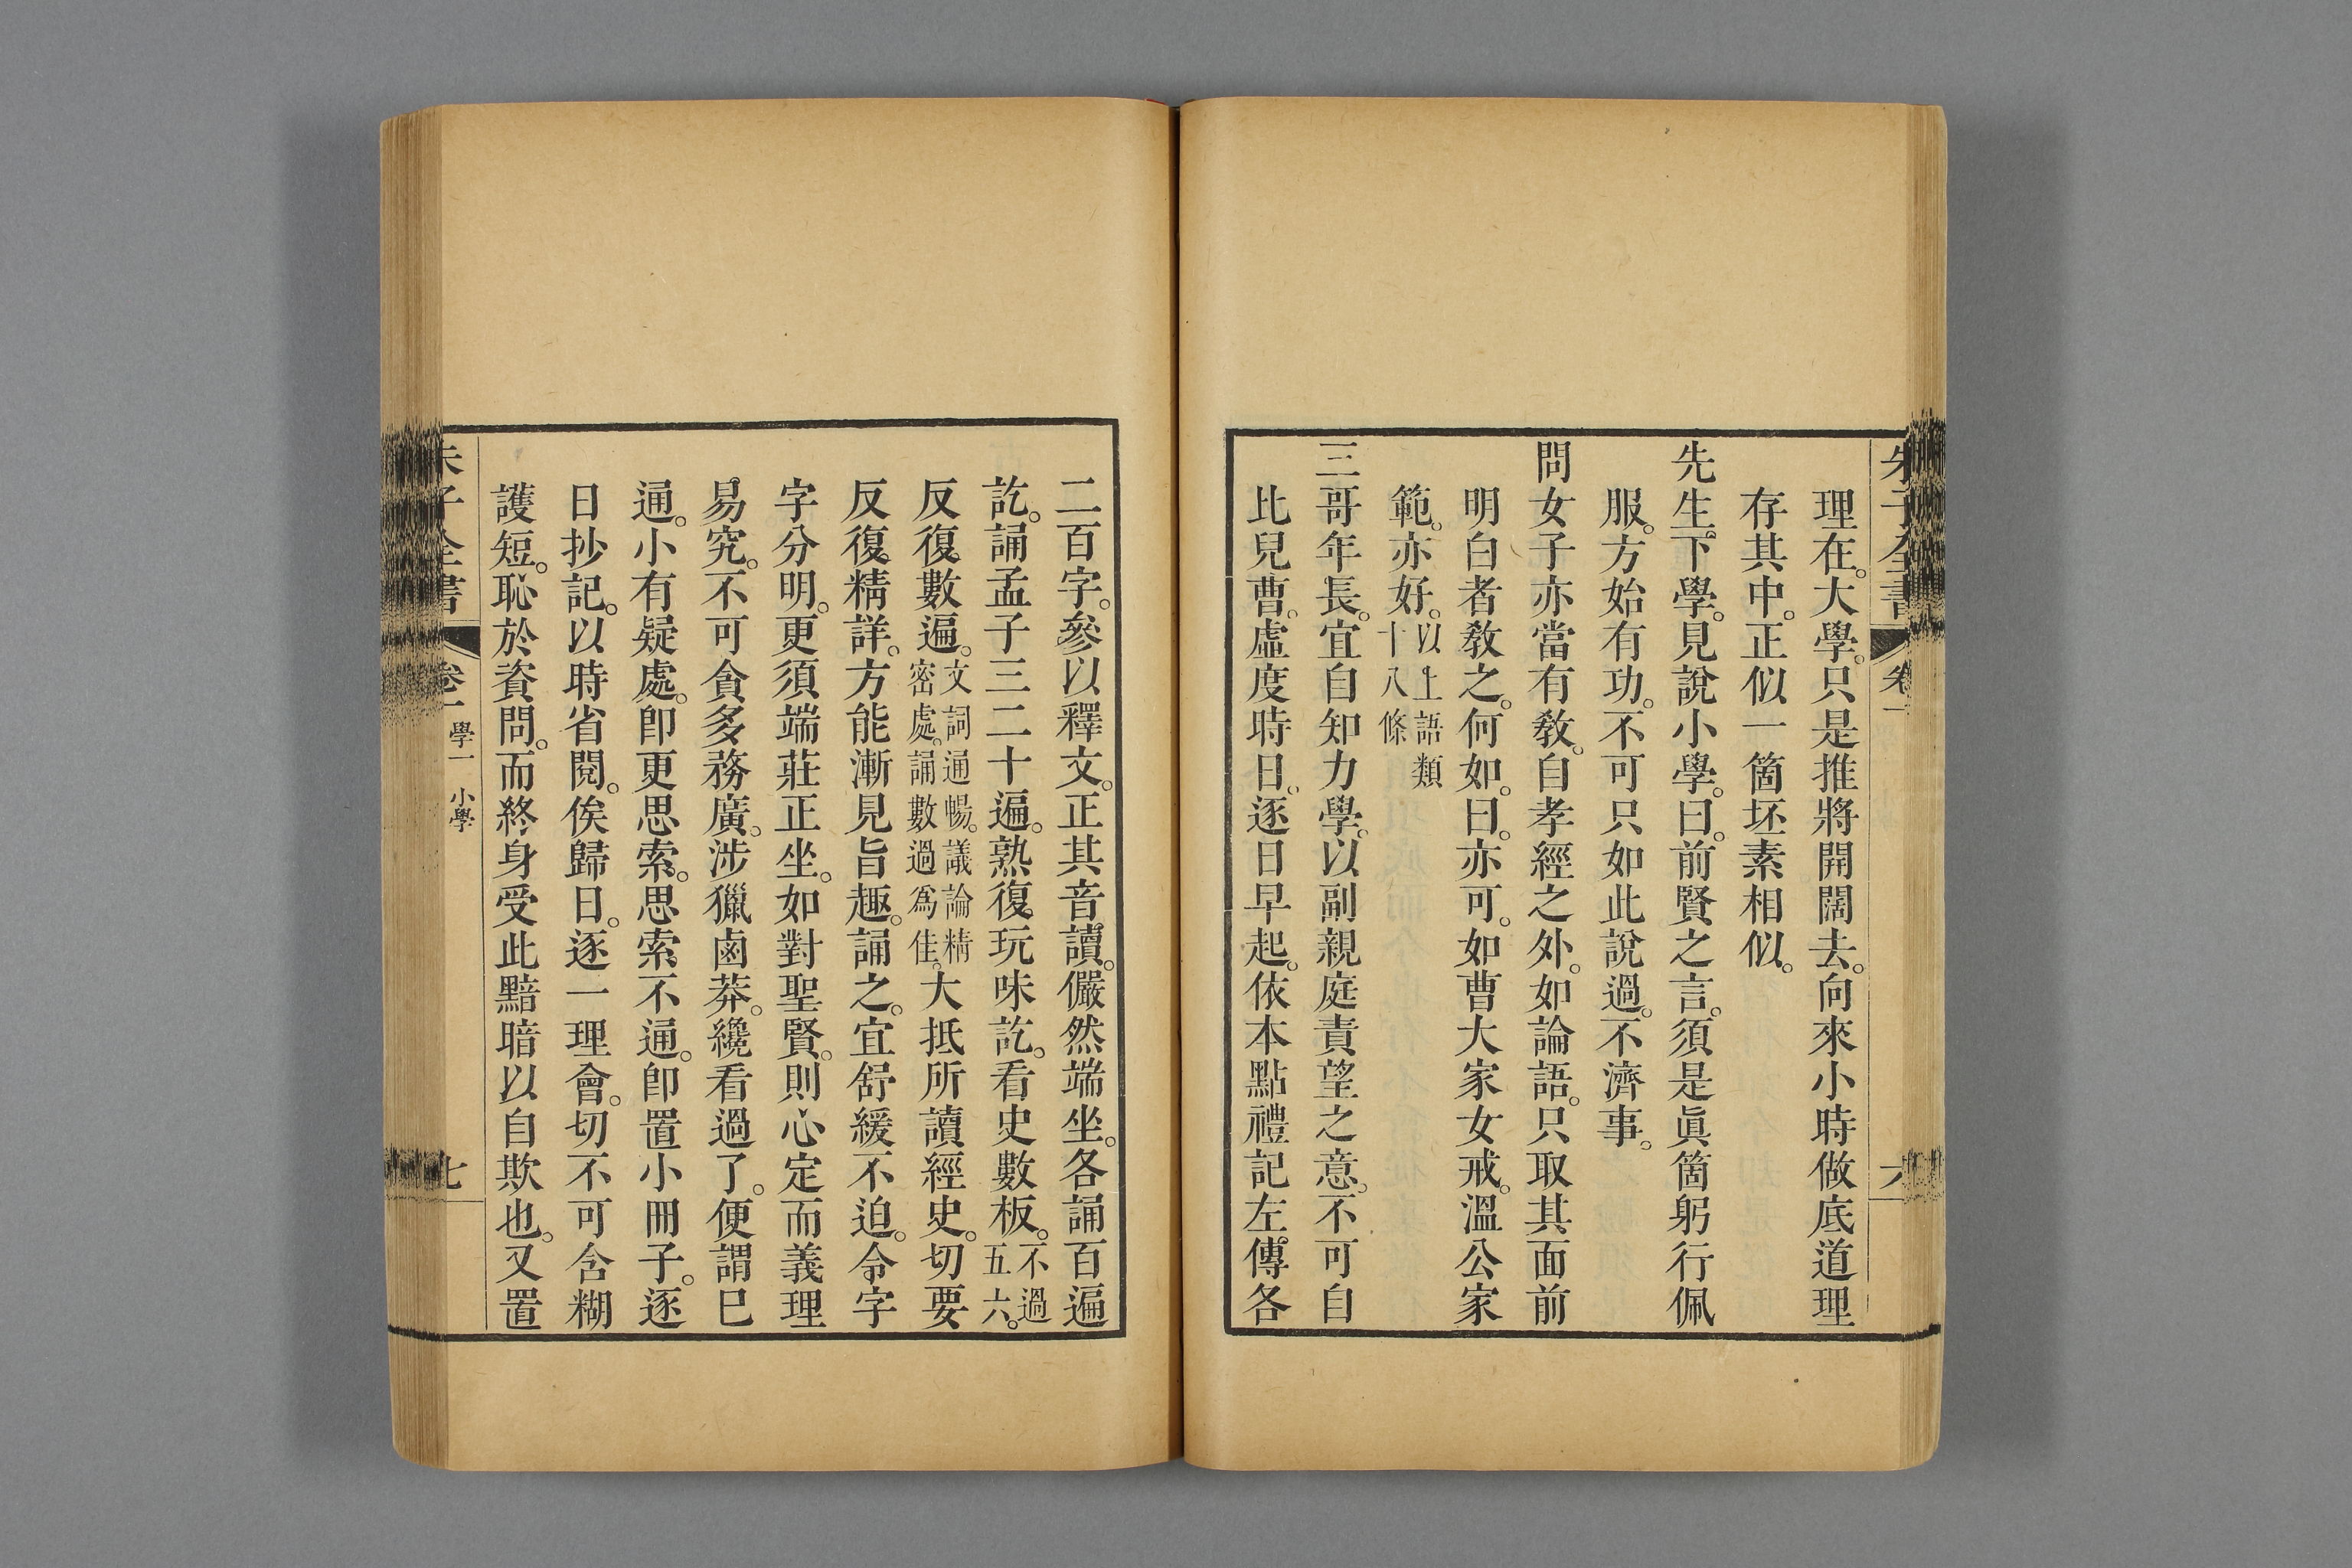 朱子全書 卷一 六
理在。大學。只是推將開闊去。向來小時做底道理
存其中。正似一箇坯素相似。
先生下學。見說小學。曰。前賢之言。須是眞箇躬行佩
服。方始有功。不可只如此說過。不濟事。
問女子亦當有敎。自孝經之外。如論語。只取其面前
明白者敎之。何如。曰。亦可。如曹大家女戒。溫公家
範。亦好。以上語類十八條
三哥年長。宜自知力學。以副親庭責望之意。不可自
比兒曹。虛度時日。逐日早起。依本點禮記左傳各
二百字。參以釋文。正其音讀。儼然端坐。各誦百遍
訖。誦孟子三二十遍。熟復玩味訖。看史數板。不過五六。
反復數遍。文詞通暢。議論精密處。誦數過爲佳。大抵所讀經史。切要
反復精詳。方能漸見旨趣。誦之。宜舒緩不迫。令字
字分明。更須端莊正坐。如對聖賢。則心定而義理
易究。不可貪多務廣。涉獵鹵莽。纔看過了。便謂已
通。小有疑處。卽更思索。思索不通。卽置小冊子。逐
日抄記。以時省閱。俟歸日。逐一理會。切不可含糊
護短。恥於資問。而終身受此黯暗以自欺也。又置
朱子全書 卷一 學一 小學 七